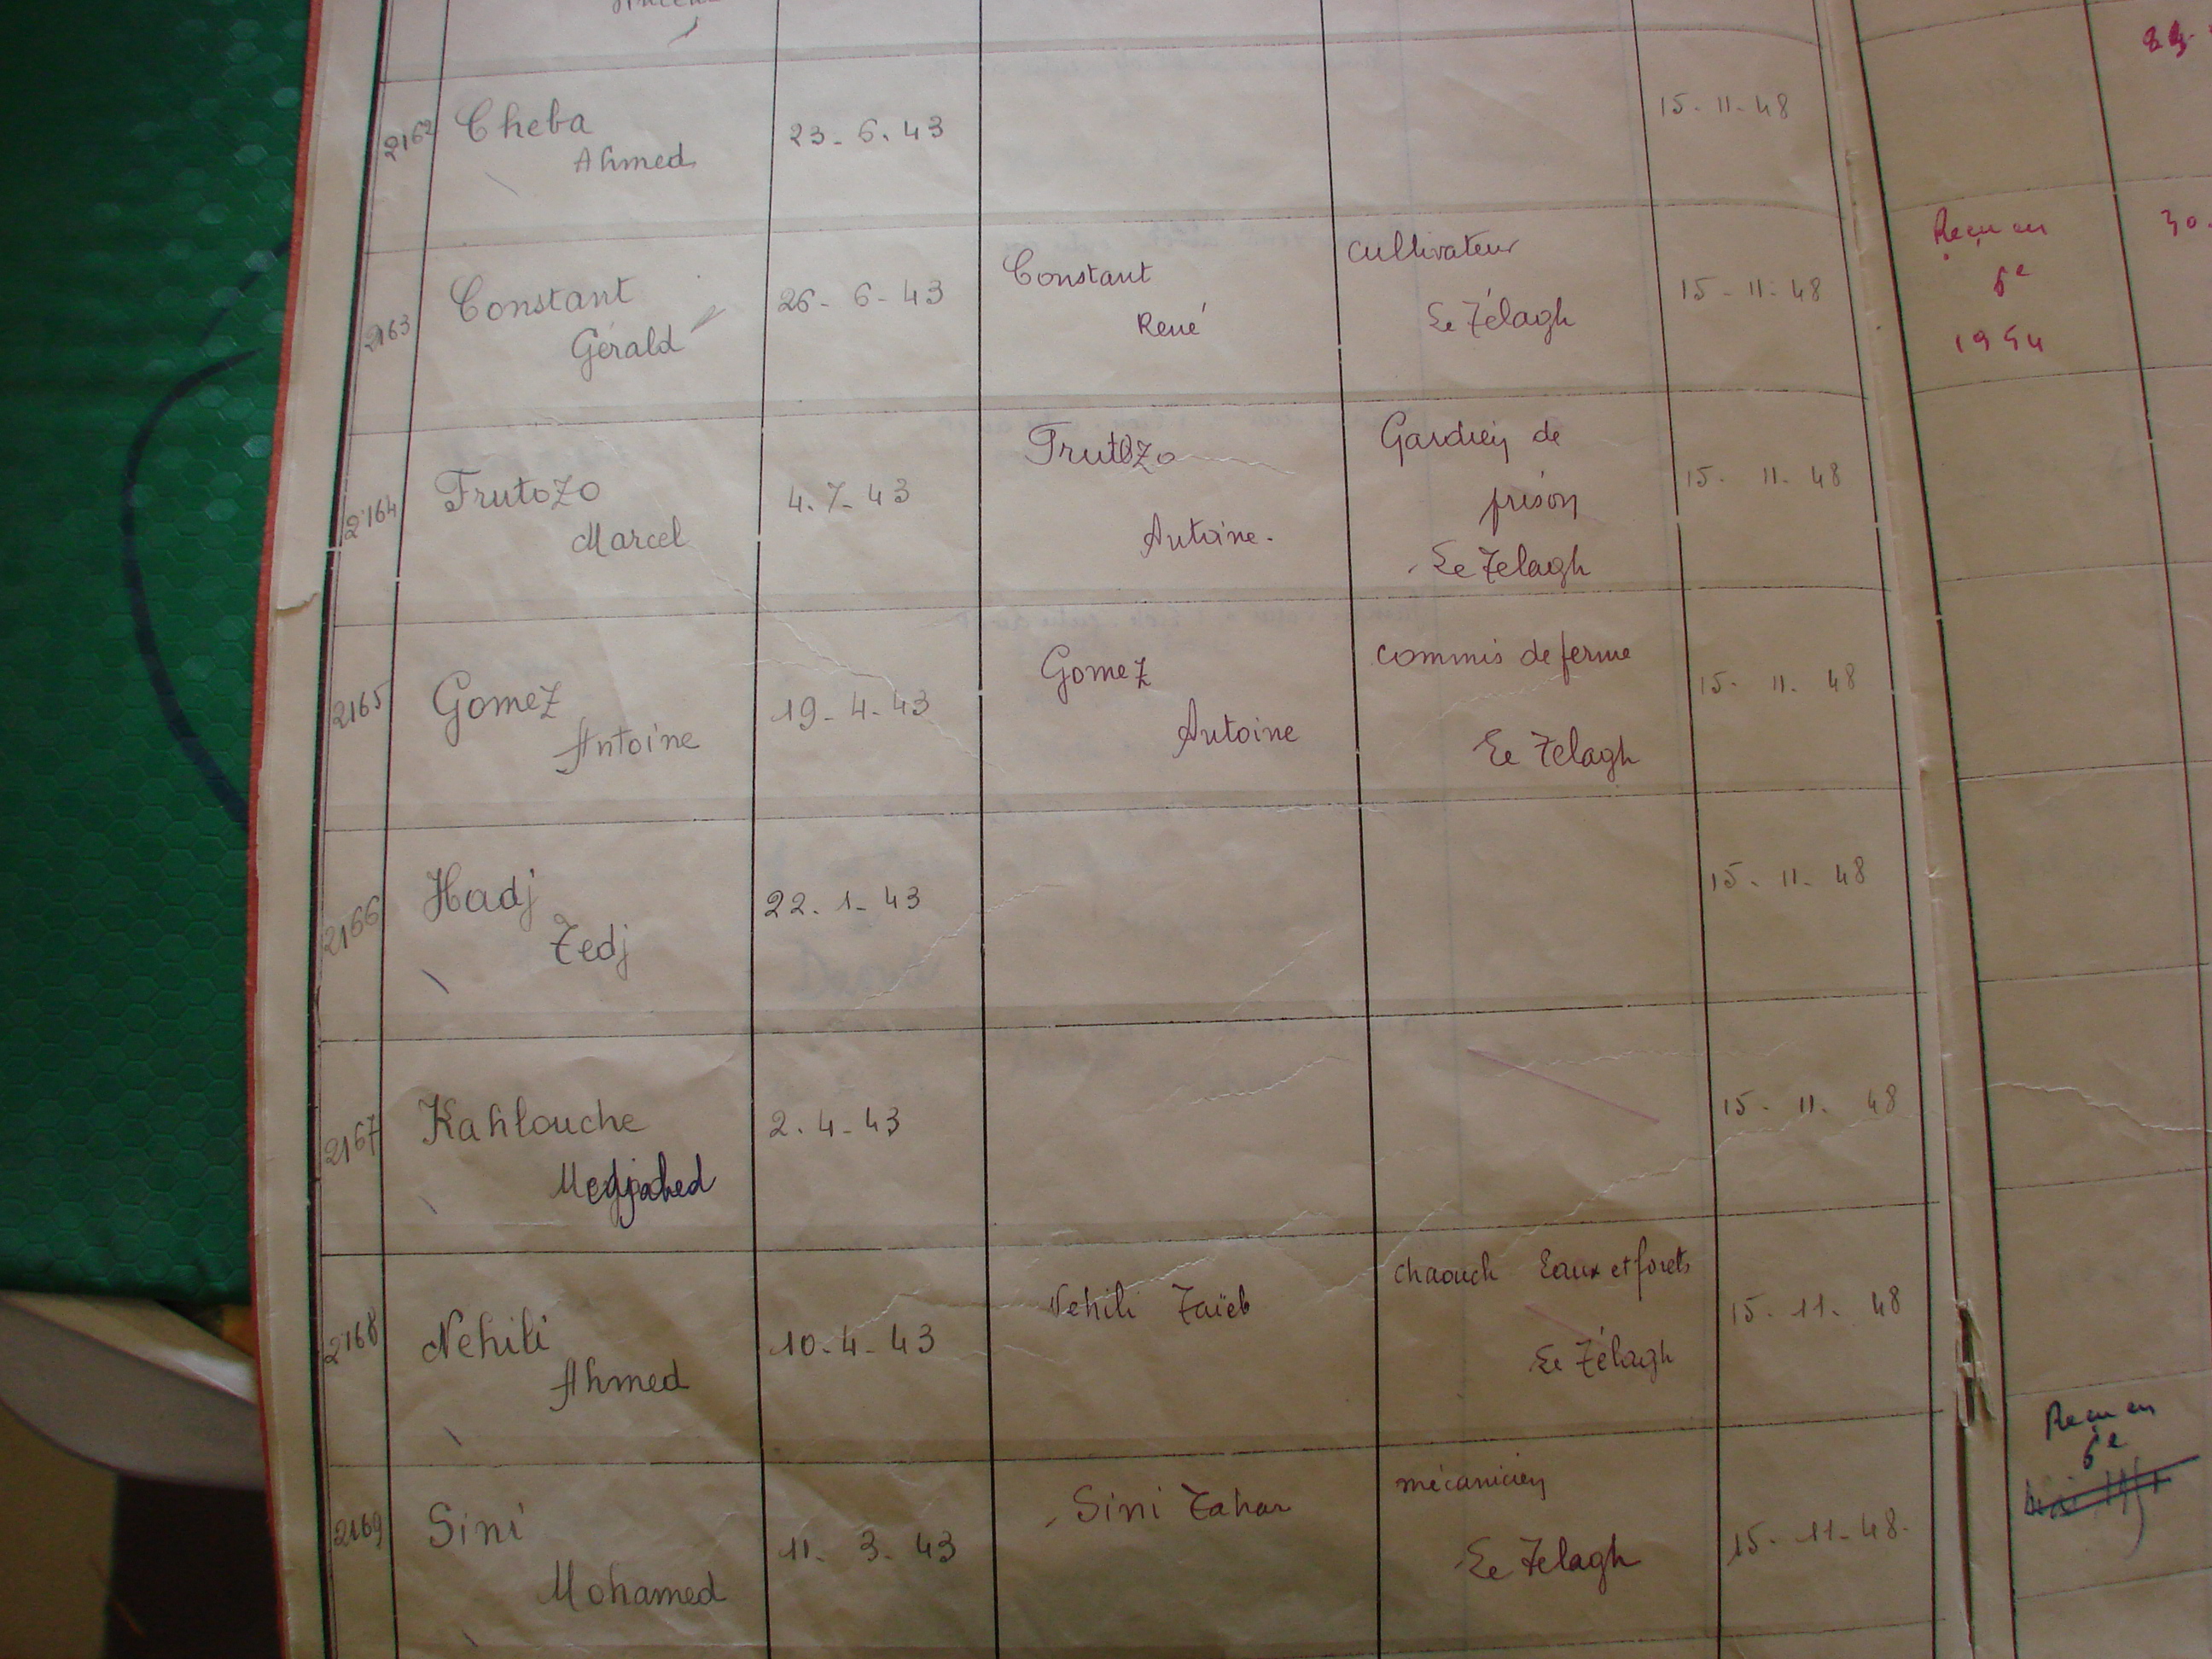 2162 Cheba 23-6.43 15-11-48
Ahmed
2163 Constant 26-6-43 Constant cultivateur 15-11-48 Reçu en
Gérald René Le Télagh 6e
1954
30.
2164 Frutozo 4.7-43 Frutozo Gardien de 15-11-48
Marcel Antoine. prison
Le Telagh
2165 Gomez 19-4-43 Gomez commis de ferme 15-11-48
Antoine Antoine Le Telagh
2166 Hadj 22.1-43 15-11-48
Tedj
2167 Kahlouche 2.4-43 15-11-48
Medjahed
2168 Nehili 10-4-43 Nehili Taïeb chaouch Eaux et forets 15-11-48
Ahmed Le Télagh
2169 Sini 11-3-43 Sini Tahar mécanicien 15-11-48. Reçu en
Mohamed Le Telagh 6e